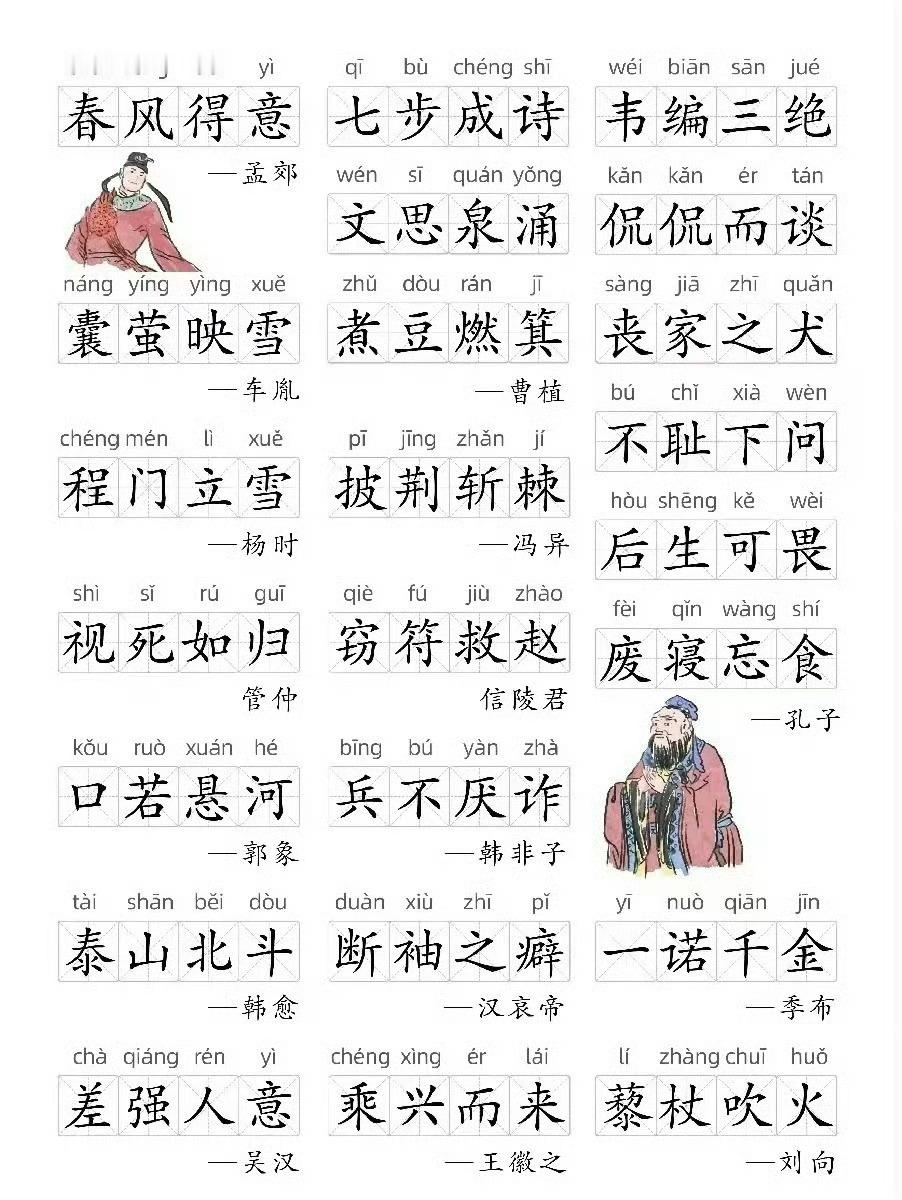 yì
春风得意
—孟郊
náng yíng yìng xuě
囊萤映雪
—车胤
chéng mén lì xuě
程门立雪
—杨时
shì sǐ rú guī
视死如归
管仲
kǒu ruò xuán hé
口若悬河
—郭象
tài shān běi dòu
泰山北斗
—韩愈
chà qiáng rén yì
差强人意
—吴汉
qī bù chéng shī
七步成诗
wén sī quán yǒng
文思泉涌
zhǔ dòu rán jī
煮豆燃箕
—曹植
pī jīng zhǎn jí
披荆斩棘
—冯异
qiè fú jiù zhào
窃符救赵
信陵君
bīng bú yàn zhà
兵不厌诈
—韩非子
duàn xiù zhī pǐ
断袖之癖
—汉哀帝
chéng xìng ér lái
乘兴而来
—王徽之
wéi biān sān jué
韦编三绝
kǎn kǎn ér tán
侃侃而谈
sàng jiā zhī quǎn
丧家之犬
bú chǐ xià wèn
不耻下问
hòu shēng kě wèi
后生可畏
fèi qǐn wàng shí
废寝忘食
—孔子
yī nuò qiān jīn
一诺千金
—季布
lí zhàng chuī huǒ
藜杖吹火
—刘向